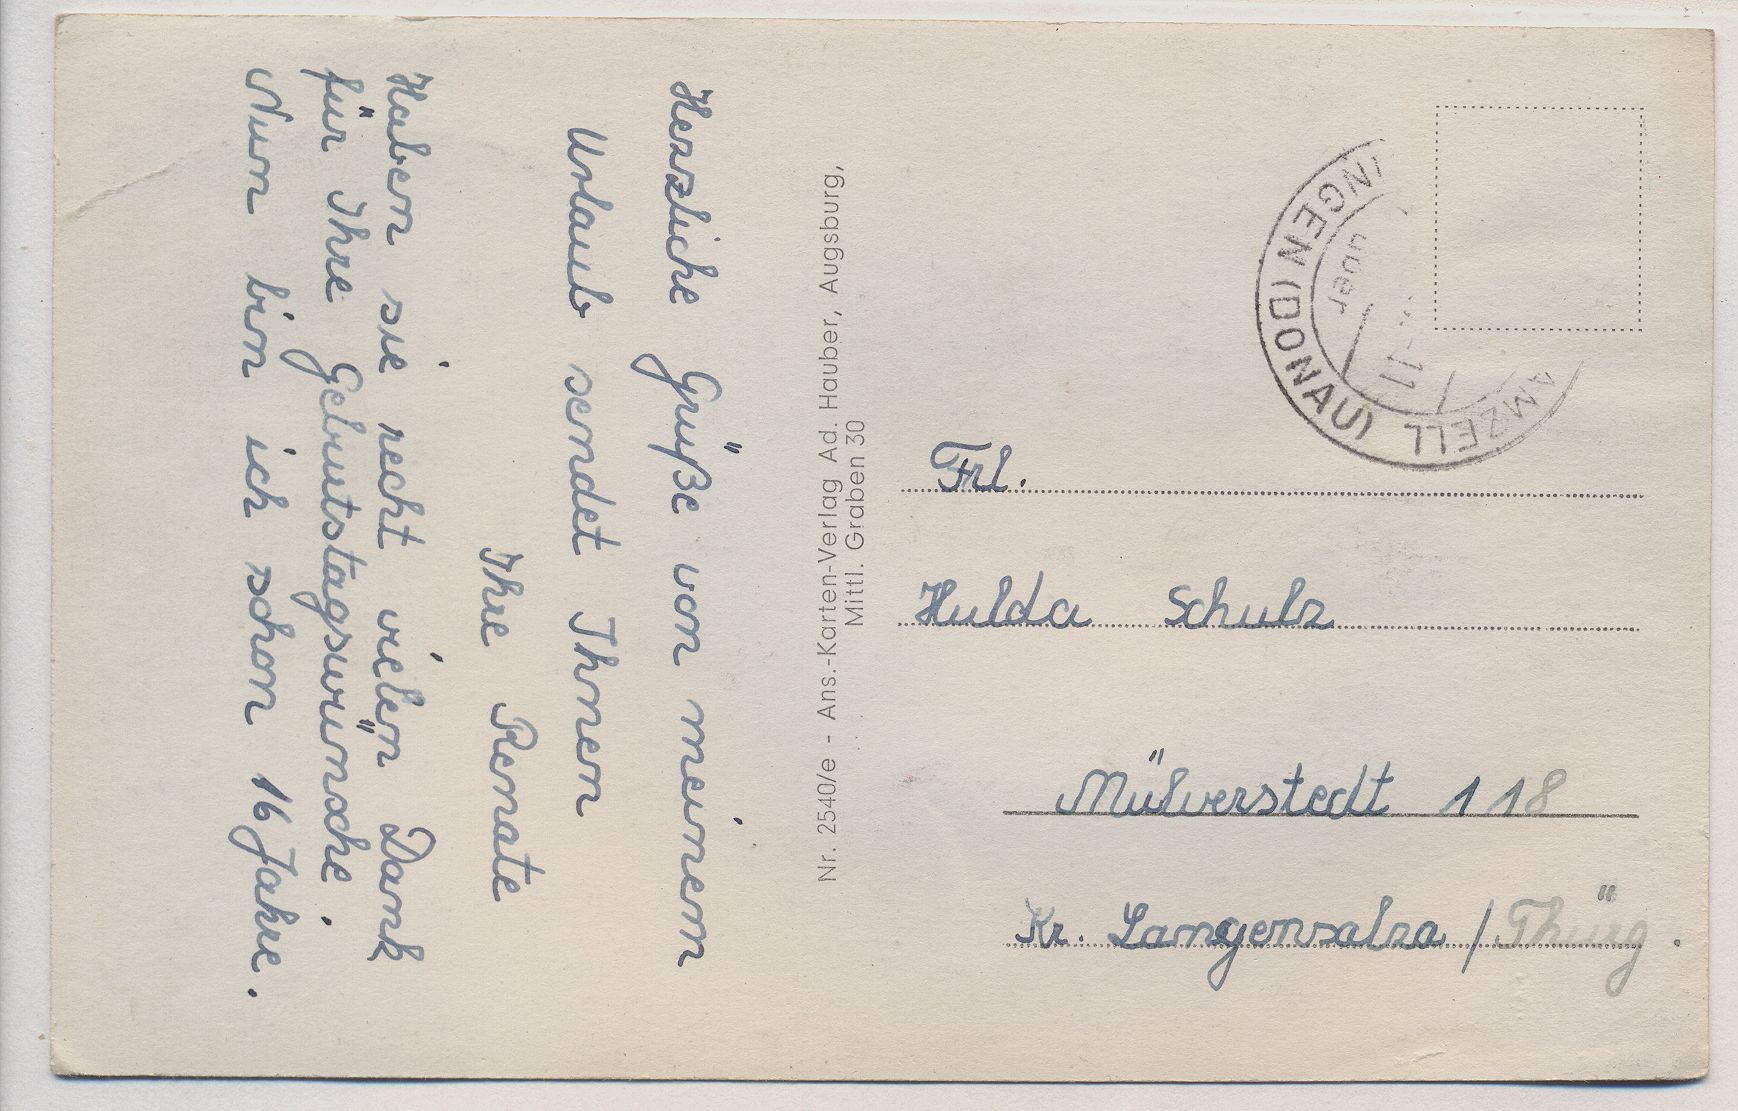 Herzliche Grüße von meinem
Urlaub sendet Ihnen
Ihre Renate
Haben sie recht vielen Dank
für Ihre Geburtstagswünsche
Nun bin ich schon 16 Jahre.
Nr. 2540/e - Ans.-Karten-Verlag Ad. Hauber, Augsburg,
Mittl. Graben 30
INGEN (DONAU)
über
-11
AMZELL
Frl.
Hulda Schulz
Mülverstedt 118
Kr. Langensalza / Thürg.